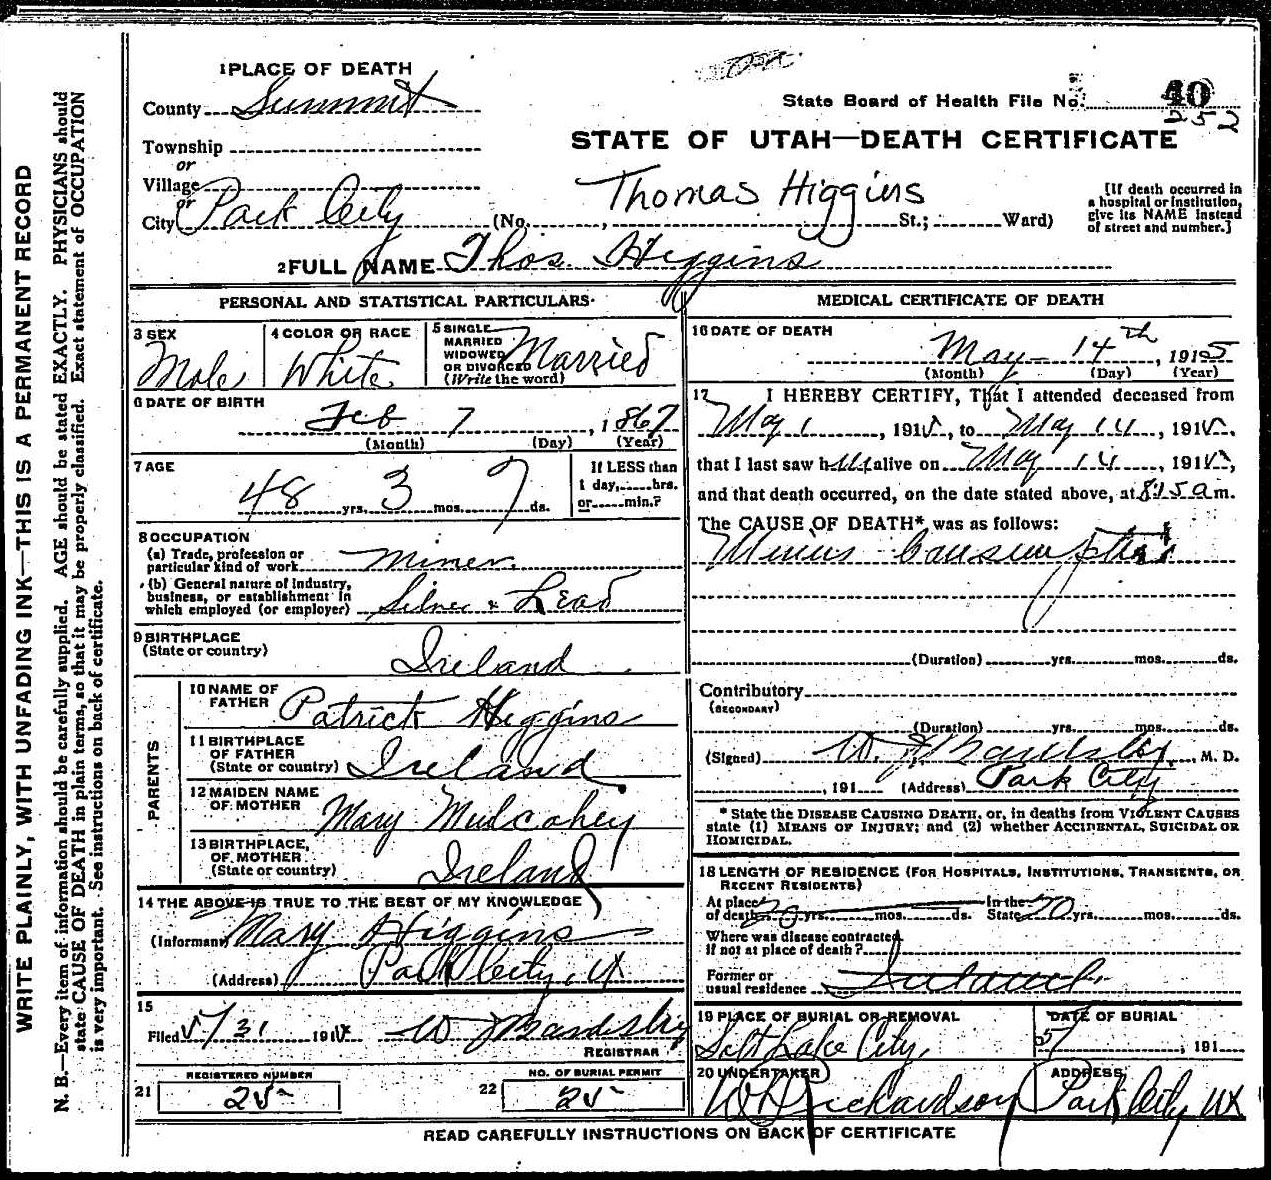 1 PLACE OF DEATH
County Summit
State Board of Health File No. 40
252
STATE OF UTAH—DEATH CERTIFICATE
Township
or
Village
or
City Park City
Thomas Higgins
(No. , St.; Ward)
[If death occurred in
a hospital or institution,
give its NAME instead
of street and number.]
2 FULL NAME Thos. Higgins
PERSONAL AND STATISTICAL PARTICULARS
3 SEX
Male
4 COLOR OR RACE
White
5 SINGLE
MARRIED
WIDOWED
OR DIVORCED
(Write the word)
Married
6 DATE OF BIRTH
Feb 7 , 1867
(Month) (Day) (Year)
7 AGE
48 yrs. 3 mos. 7 ds.
If LESS than
1 day, hrs.
or min.?
8 OCCUPATION
(a) Trade, profession or
particular kind of work Miner
(b) General nature of Industry,
business, or establishment in
which employed (or employer) Silver & Lead
9 BIRTHPLACE
(State or country)
Ireland
PARENTS
10 NAME OF
FATHER
Patrick Higgins
11 BIRTHPLACE
OF FATHER
(State or country) Ireland
12 MAIDEN NAME
OF MOTHER
Mary Mulcahey
13 BIRTHPLACE,
OF MOTHER
(State or country)
Ireland
14 THE ABOVE IS TRUE TO THE BEST OF MY KNOWLEDGE
(Informant) Mary Higgins
(Address) Park City, Ut
15
Filed 5/31 1915
REGISTRAR
REGISTERED NUMBER
21 25
NO. OF BURIAL PERMIT
22 25
MEDICAL CERTIFICATE OF DEATH
16 DATE OF DEATH
May 14th , 1915
(Month) (Day) (Year)
17 I HEREBY CERTIFY, That I attended deceased from
May 1 , 1915, to May 14 , 1915,
that I last saw him alive on May 14 , 1915,
and that death occurred, on the date stated above, at 8:15 a m.
The CAUSE OF DEATH* was as follows:
Miners Consumption
(Duration) yrs. mos. ds.
Contributory
(SECONDARY)
(Duration) yrs. mos. ds.
(Signed) , M. D.
, 191 (Address) Park City
* State the DISEASE CAUSING DEATH, or, in deaths from VIOLENT CAUSES
state (1) MEANS OF INJURY; and (2) whether ACCIDENTAL, SUICIDAL OR
HOMICIDAL.
18 LENGTH OF RESIDENCE (FOR HOSPITALS, INSTITUTIONS, TRANSIENTS, OR
RECENT RESIDENTS)
At place
of death 20 yrs. mos. ds. In the
State 20 yrs. mos. ds.
Where was disease contracted
if not at place of death?
Former or
usual residence
19 PLACE OF BURIAL OR REMOVAL
Salt Lake City,
DATE OF BURIAL
, 191
20 UNDERTAKER
W H Richardson
ADDRESS
Park City Ut
READ CAREFULLY INSTRUCTIONS ON BACK OF CERTIFICATE
WRITE PLAINLY, WITH UNFADING INK—THIS IS A PERMANENT RECORD
N. B.—Every item of information should be carefully supplied. AGE should be stated EXACTLY. PHYSICIANS should
state CAUSE OF DEATH in plain terms, so that it may be properly classified. Exact statement of OCCUPATION
is very important. See instructions on back of certificate.